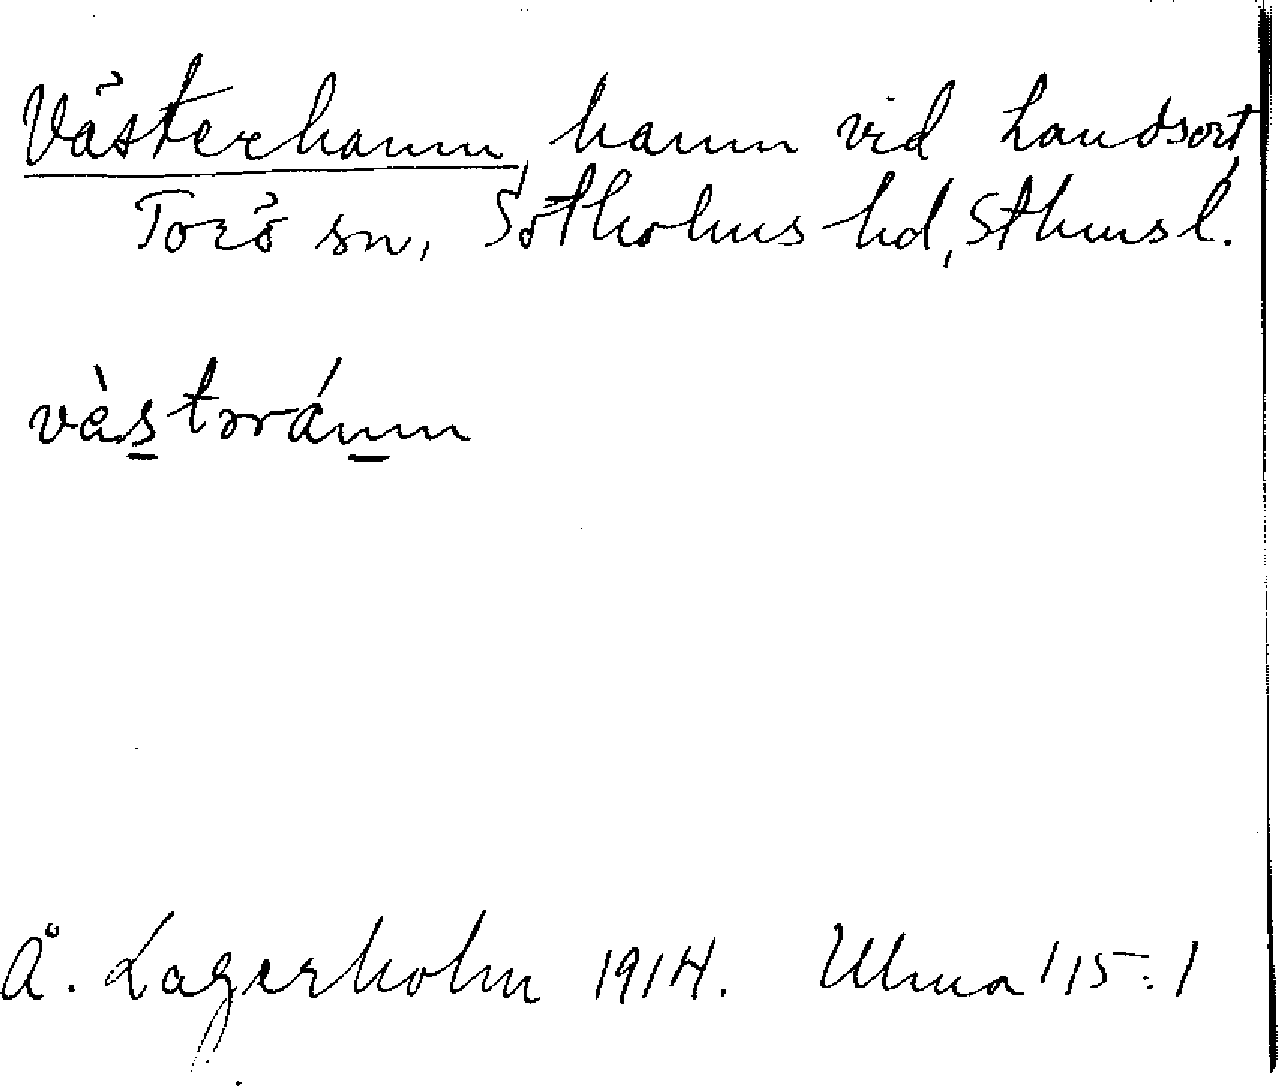 Västerhamn, hamn vid Landsort,
Torö sn, Sotholms hd, Sthmsl.
vàstərámn
Å. Lagerholm 1914. Ulma 115:1